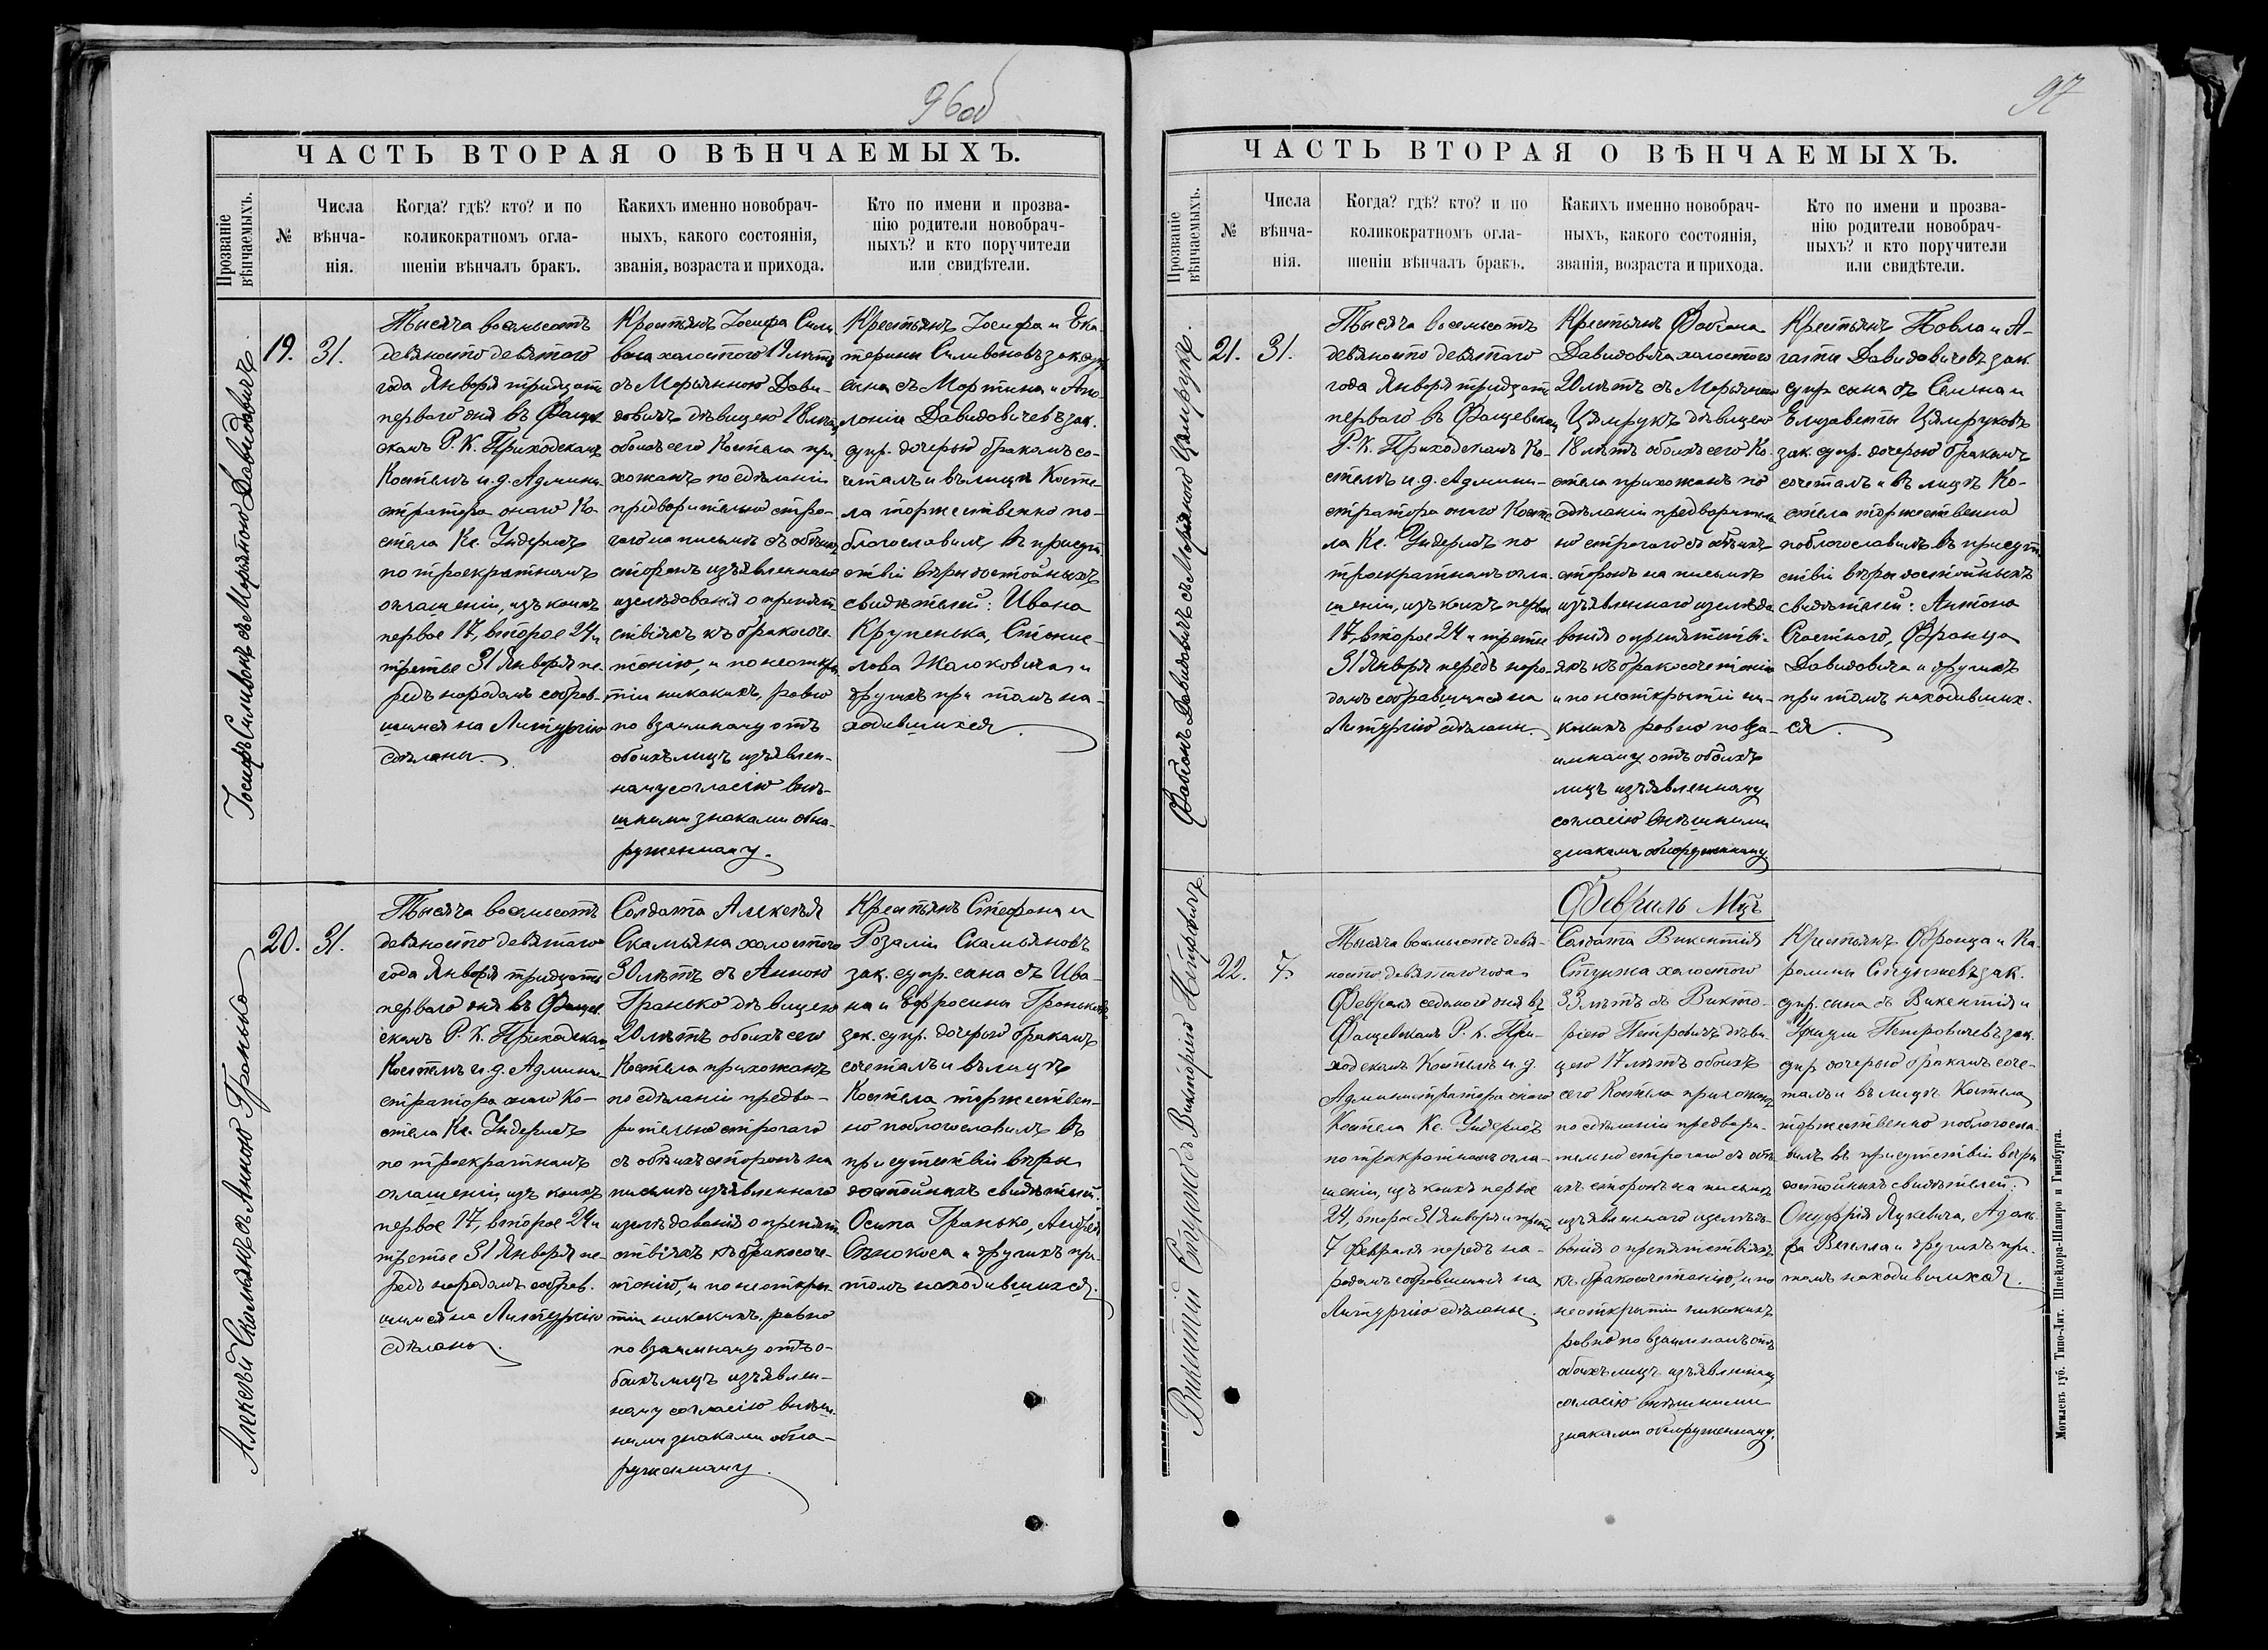 96об
ЧАСТЬ ВТОРАЯ О ВѢНЧАЕМЫХЪ.
Прозваніе вѣнчаемыхъ.
№
Числа вѣнча-нія.
Когда? гдѣ? кто? и по
коликократномъ огла-
шеніи вѣнчалъ бракъ.
Какихъ именно новобрач-
ныхъ, какого состоянія,
званія, возраста и прихода.
Кто по имени и прозва-
нію родители новобрач-
ныхъ? и кто поручители
или свидѣтели.
Іосифъ Силивонъ съ Марьяною Давидовичъ.
19.
31.
Тысяча восемьсотъ
девяносто девятаго
года Января тридцать
перваго дня въ Фащев-
скомъ Р. К. Приходскомъ
Костелѣ и. д. Админи-
стратора онаго Ко-
стела Кс. Ундерисъ
по троекратномъ
оглашеніи, изъ коихъ
первое 17, второе 24 и
третье 31 Января пе-
редъ народомъ собрав-
шимся на Литургію
сдѣланы.
Крестьянъ Іосифа Сили-
вона холостого 19 лѣтъ
съ Марьянною Дави-
довичъ дѣвицею 18 лѣтъ
обоихъ сего Костела при-
хожанъ по сдѣланіи
предварительно стро-
гаго на письмѣ съ обѣихъ
сторонъ изъявленнаго
изслѣдованія о препят-
ствіяхъ къ бракосоче-
танію, и по неоткры-
тіи никакихъ, равно
по взаимному отъ
обоихъ лицъ изъявлен-
ному согласію внѣ-
шними знаками обна-
руженному.
Крестьянъ Іосифа и Ека-
терины Силивоновъ зак. супр.
сына съ Мартина и Апо-
лоніи Давидовичевъ зак.
супр. дочерью бракомъ со-
четалъ и въ лицѣ Косте-
ла торжественно по-
благословилъ въ присут-
ствіи вѣры достойныхъ
свидѣтелей: Ивана
Крупенька, Станис-
лава Жолоковича и
другихъ при томъ на-
ходившихся.
Алексѣй Скамьянъ съ Анною Гранько
20.
31.
Тысяча восемьсотъ
девяносто девятаго
года Января тридцать
перваго дня въ Фащев-
скомъ Р. К. Приходском
Костелѣ и. д. Админи-
стратора онаго Ко-
стела Кс. Ундерисъ
по троекратномъ
оглашеніи, изъ коихъ
первое 17, второе 24 и
третье 31 Января пе-
редъ народомъ собрав-
шимся на Литургію
сдѣланы.
Солдата Алексѣя
Скамьяна холостого
30 лѣтъ съ Анною
Гранько дѣвицею
20 лѣтъ обоихъ сего
Костела прихожанъ
по сдѣланіи предва-
рительно строгаго
съ обѣихъ сторонъ на
письмѣ изъявленнаго
изслѣдованія о препят-
ствіяхъ къ бракосоче-
танію, и по неоткры-
тіи никакихъ, равно
по взаимному отъ о-
боихъ лицъ изъявлен-
ному согласію внѣш-
ними знаками обна-
руженному.
Крестьянъ Стефана и
Розаліи Скамьяновъ
зак. супр. сына съ Ива-
на и Ефросины Граньковъ
зак. супр. дочерью бракомъ
сочеталъ и въ лицѣ
Костела торжествен-
но поблагословилъ въ
присутствіи вѣры
достойныхъ свидѣтелей:
Осипа Гранько, Андрея
Сѣнокоса и другихъ при
томъ находившихся.
97
ЧАСТЬ ВТОРАЯ О ВѢНЧАЕМЫХЪ.
Прозваніе вѣнчаемыхъ.
№
Числа вѣнча-нія.
Когда? гдѣ? кто? и по
коликократномъ огла-
шеніи вѣнчалъ бракъ.
Какихъ именно новобрач-
ныхъ, какого состоянія,
званія, возраста и прихода.
Кто по имени и прозва-
нію родители новобрач-
ныхъ? и кто поручители
или свидѣтели.
Фабіанъ Давидовичъ съ Марьяною Цямрукъ.
21.
31.
Тысяча восемьсотъ
девяносто девятаго
года Января тридцать
перваго въ Фащевском
Р. К. Приходскомъ Ко-
стелѣ и. д. Админи-
стратора онаго Косте-
ла Кс. Ундерисъ по
троекратномъ огла-
шеніи, изъ коихъ первое
17, второе 24 и третье
31 Января передъ наро-
домъ собравшимся на
Литургію сдѣланы.
Крестьянъ Фабіана
Давидовича холостого
20 лѣтъ съ Марьяною
Цямрукъ дѣвицею
18 лѣтъ обоихъ сего Ко-
стела прихожанъ по
сдѣланіи предваритель-
но строгаго съ обѣихъ
сторонъ на письмѣ
изъявленнаго изслѣдо
ванія о препятстві-
яхъ къ бракосочетанію
и по неоткрытіи ни-
какихъ равно по вза-
имному отъ обоихъ
лицъ изъявленному
согласію внѣшними
знаками обнаруженному.
Крестьянъ Павла и А-
гаты Давидовичевъ зак.
супр. сына съ Семена и
Елизаветы Цямруковъ
зак. супр. дочерью бракомъ
сочеталъ и въ лицѣ Ко-
стела торжественно
поблагословилъ въ присут
ствіи вѣры достойныхъ
свидѣтелей: Антона
Счастного, Франца
Давидовича и другихъ
при томъ находивших-
ся.
Февраль Мцъ
Викентій Стунжа съ Викторіею Петровичъ.
22.
7.
Тысяча восемьсотъ девя-
носто девятаго года
Февраля седьмого дня въ
Фащевскомъ Р. К. При-
ходскомъ Костелѣ и. д.
Администратора онаго
Костела Кс. Ундерисъ
по троекратномъ огла-
шеніи, изъ коихъ первое
24, второе 31 Января и третье
7 Февраля передъ на-
родомъ собравшимся на
Литургію сдѣланы.
Солдата Викентія
Стунжа холостого
33 лѣтъ съ Викто-
ріею Петровичъ дѣви-
цею 17 лѣтъ обоихъ
сего Костела прихожанъ
по сдѣланіи предвари-
тельно строгаго съ обѣ-
ихъ сторонъ на письмѣ
изъявленнаго изслѣдо-
ванія о препятствіяхъ
къ бракосочетанію, и по
неоткрытіи никакихъ
равно по взаимномъ отъ
обоихъ лицъ изъявленному
согласію внѣшними
знаками обнаруженному.
Крестьянъ Франца и Ка-
ролины Стунжевъ зак.
супр. сына съ Викентія и
Петровичевъ зак.
супр. дочерью бракомъ соче-
талъ и въ лицѣ Костела
торжественно поблагосла-
вилъ въ присутствіи вѣры
достойныхъ свидѣтелей:
Онуфрія Яцкевича, Адоль-
фа и другихъ при
томъ находившихся.
Могилевъ губ. Типо-Лит. Шнейдора-Шапиро и Гинзбурга.